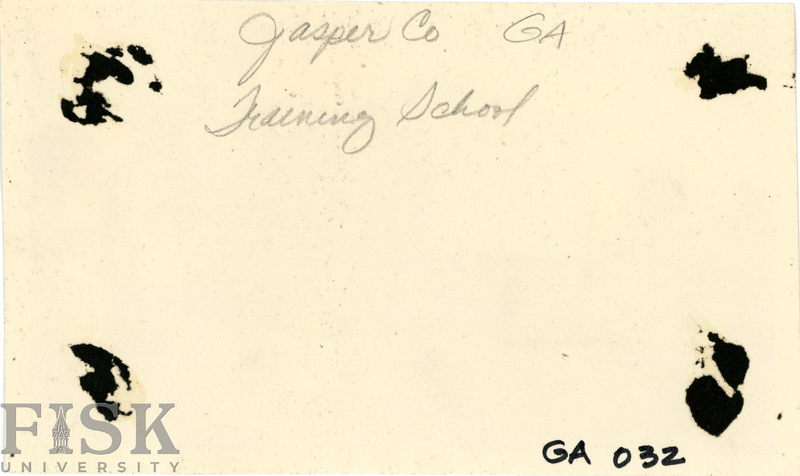 Jasper Co GA
Training School
GA 032
FISK
UNIVERSITY